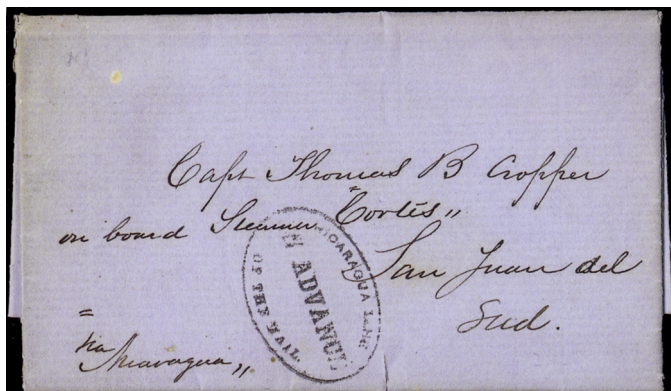 Capt Thomas B Cropper
on board Steamer "Cortes"
San Juan del
Sud.
=
via
Nicaragua,,
NICARAGUA LINE
IN ADVANCE
OF THE MAILS